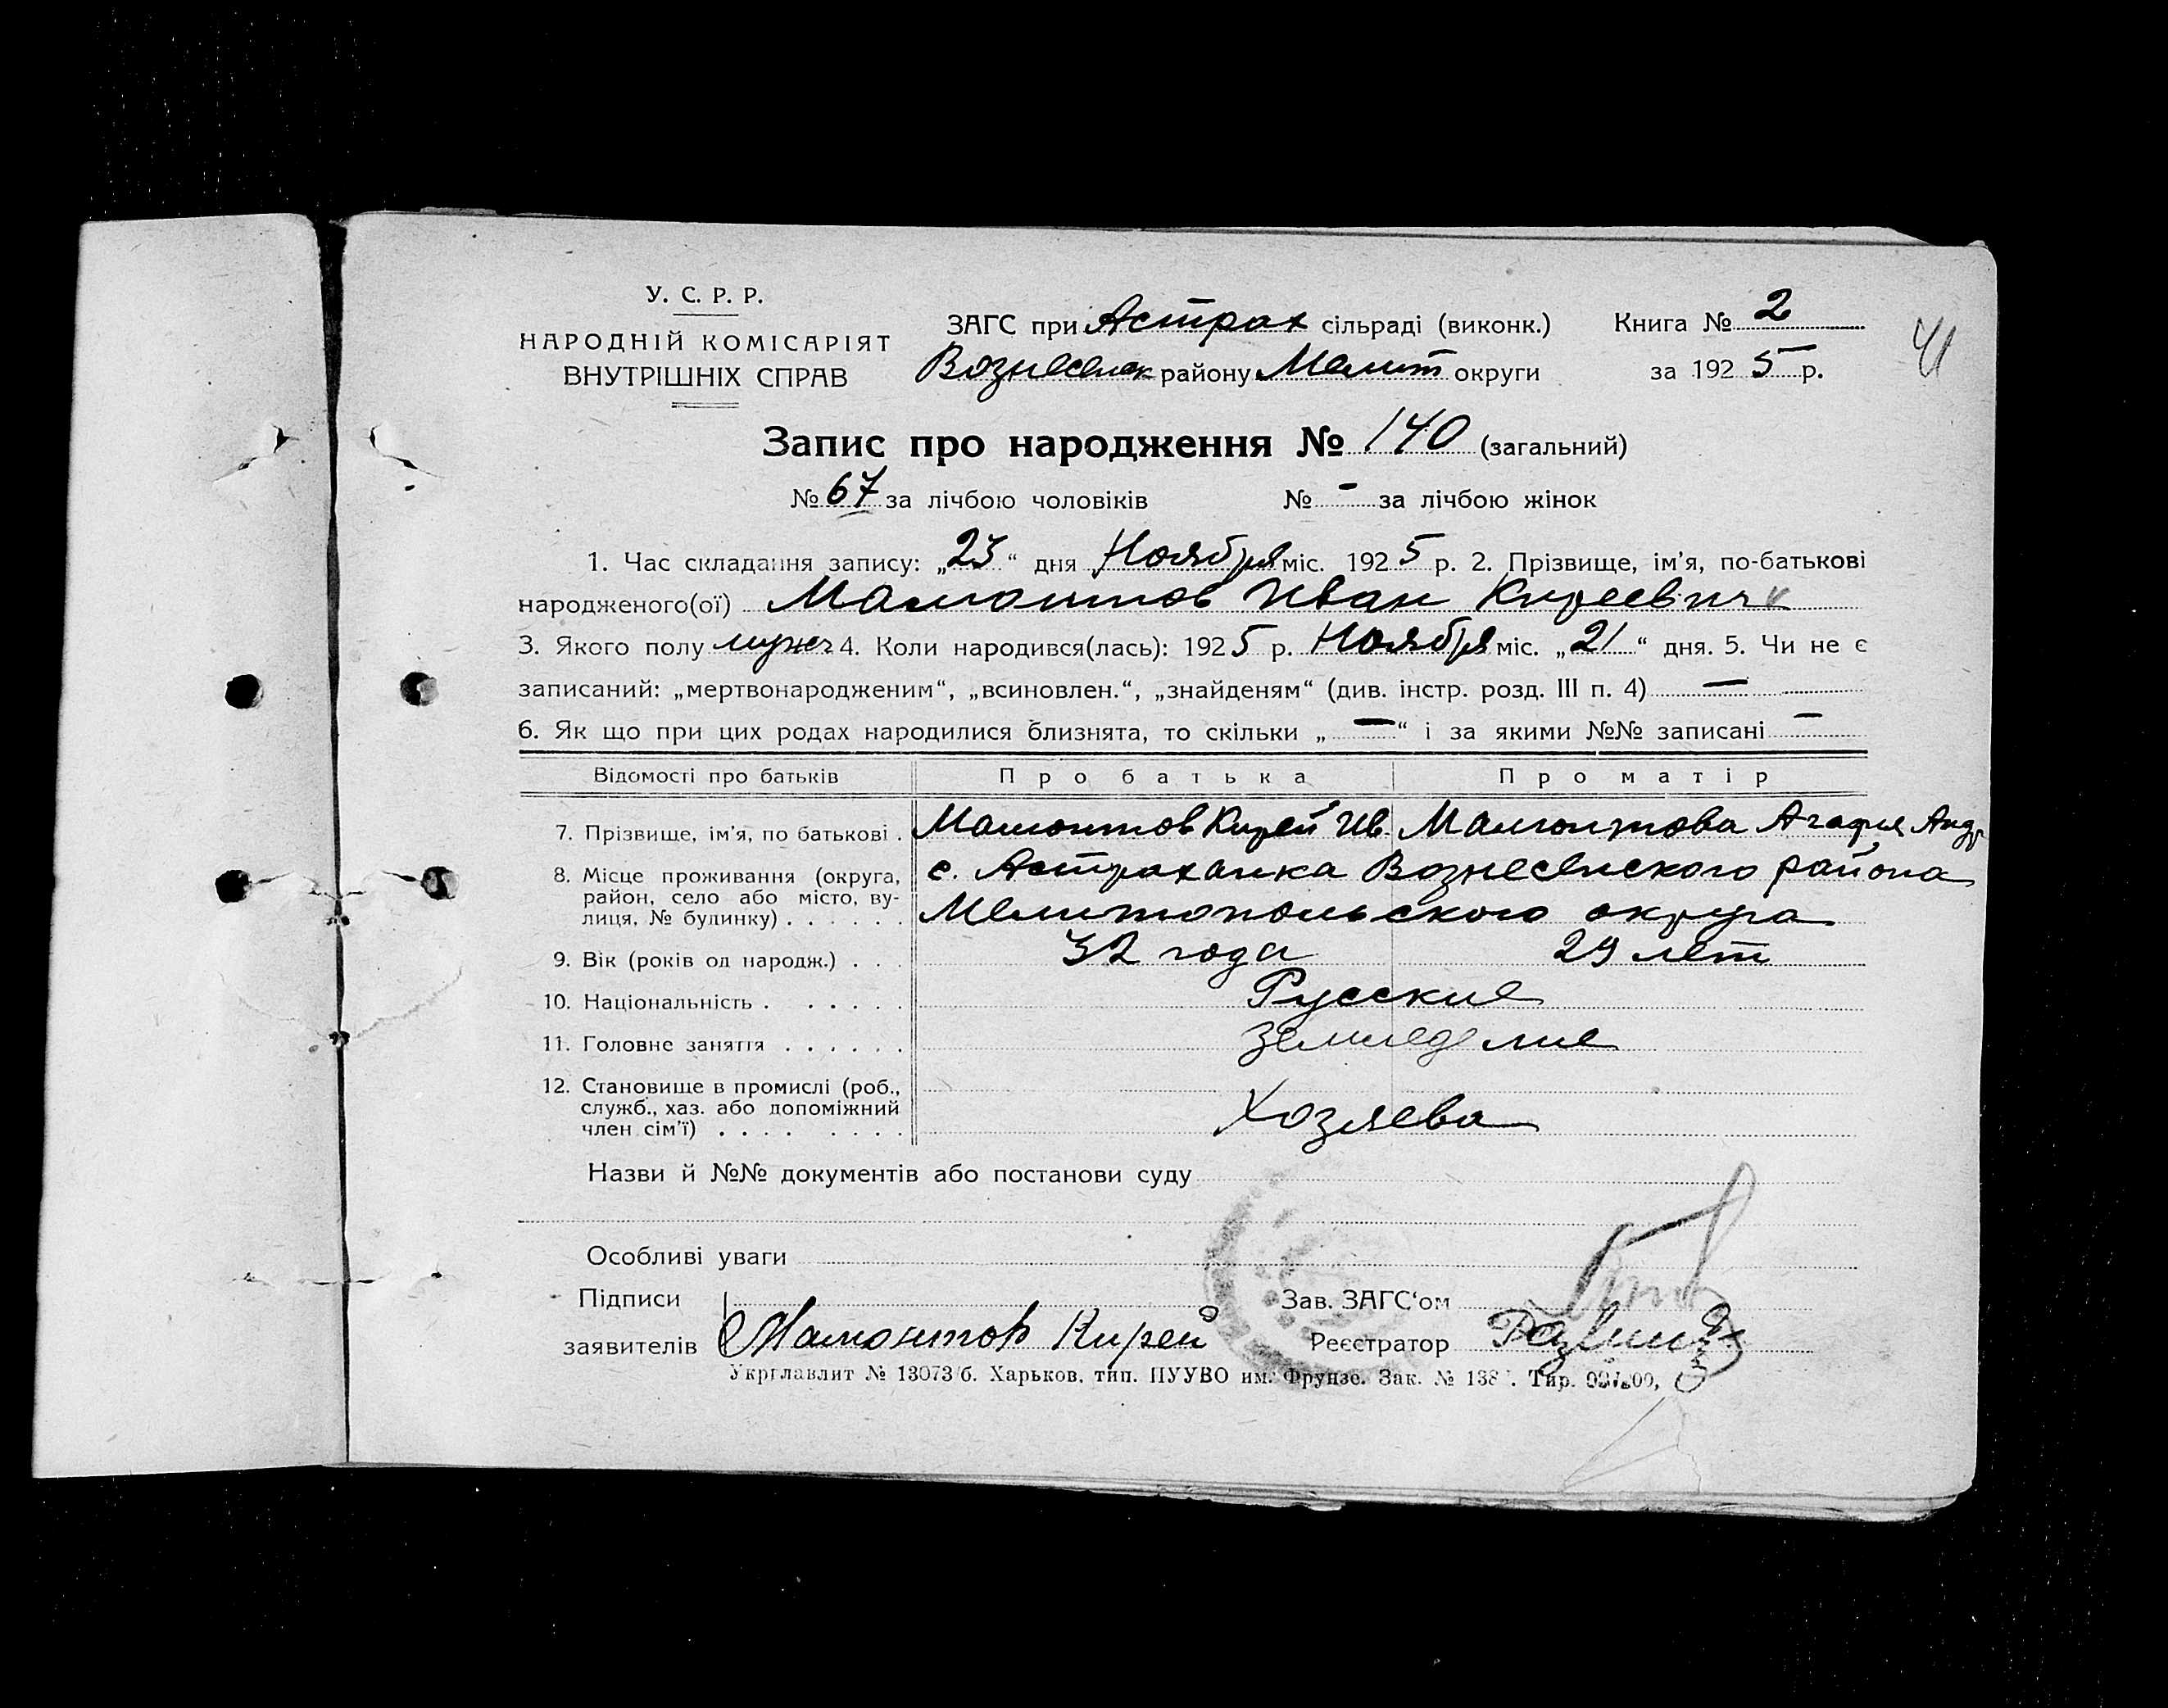 У. С. Р. Р.
НАРОДНІЙ КОМІСАРІЯТ
ВНУТРІШНІХ СПРАВ
ЗАГС при Астрах сільраді (виконк.)
Вознесенск району Мелит округи
Книга № 2
за 1925 р.
41
Запис про народження № 140 (загальний)
№ 67 за лічбою чоловіків № – за лічбою жінок
1. Час складання запису: „23“ дня Ноября міс. 1925 р. 2. Прізвище, ім'я, по-батькові
народженого(ої) Мамонтов Иван Киреевич
3. Якого полу мужс 4. Коли народився(лась): 1925 р. Ноября міс. „21“ дня. 5. Чи не є
записаний: „мертвонародженим“, „всиновлен.“, „знайденям“ (див. інстр. розд. III п. 4) —
6. Як що при цих родах народилися близнята, то скільки „—“ і за якими №№ записані –
Відомості про батьків Про батька Про матір
7. Прізвище, ім'я, по батькові . Мамонтов Кирей Ив. Мамонтова Агафия Андр
8. Місце проживання (округа, с. Астраханка Вознесенского района
район, село або місто, ву-
лиця, № будинку) . . . . . . Мелитопольского округа
9. Вік (років од народж.) . . . 32 года 29 лет
10. Національність . . . . . . Русские
11. Головне заняття . . . . . . земледелие
12. Становище в промислі (роб.,
служб., хаз. або допоміжний Хозяева
член сім'ї) . . . . . . . .
Назви й №№ документів або постанови суду
Особливі уваги
Підписи Зав. ЗАГС'ом
заявителів Мамонтов Кирей Реєстратор
Укрглавлит № 13073/б. Харьков. тип. ПУУВО им. Фрунзе. Зак. № 138 Тир.